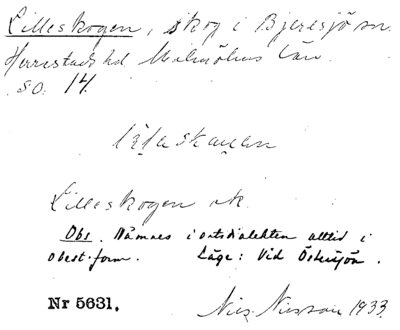 Lilleskogen, skog i Bjeresjö sn.
Herrestads hd Malmöhus län.
so. 14.
lilaskauen
Lilleskogen ek.
Obs. Nämnes i ortsdialekten alltid i
obest. form. Läge: Vid Östersjön.
Nr 5631.
Nils Nilsson 1933.